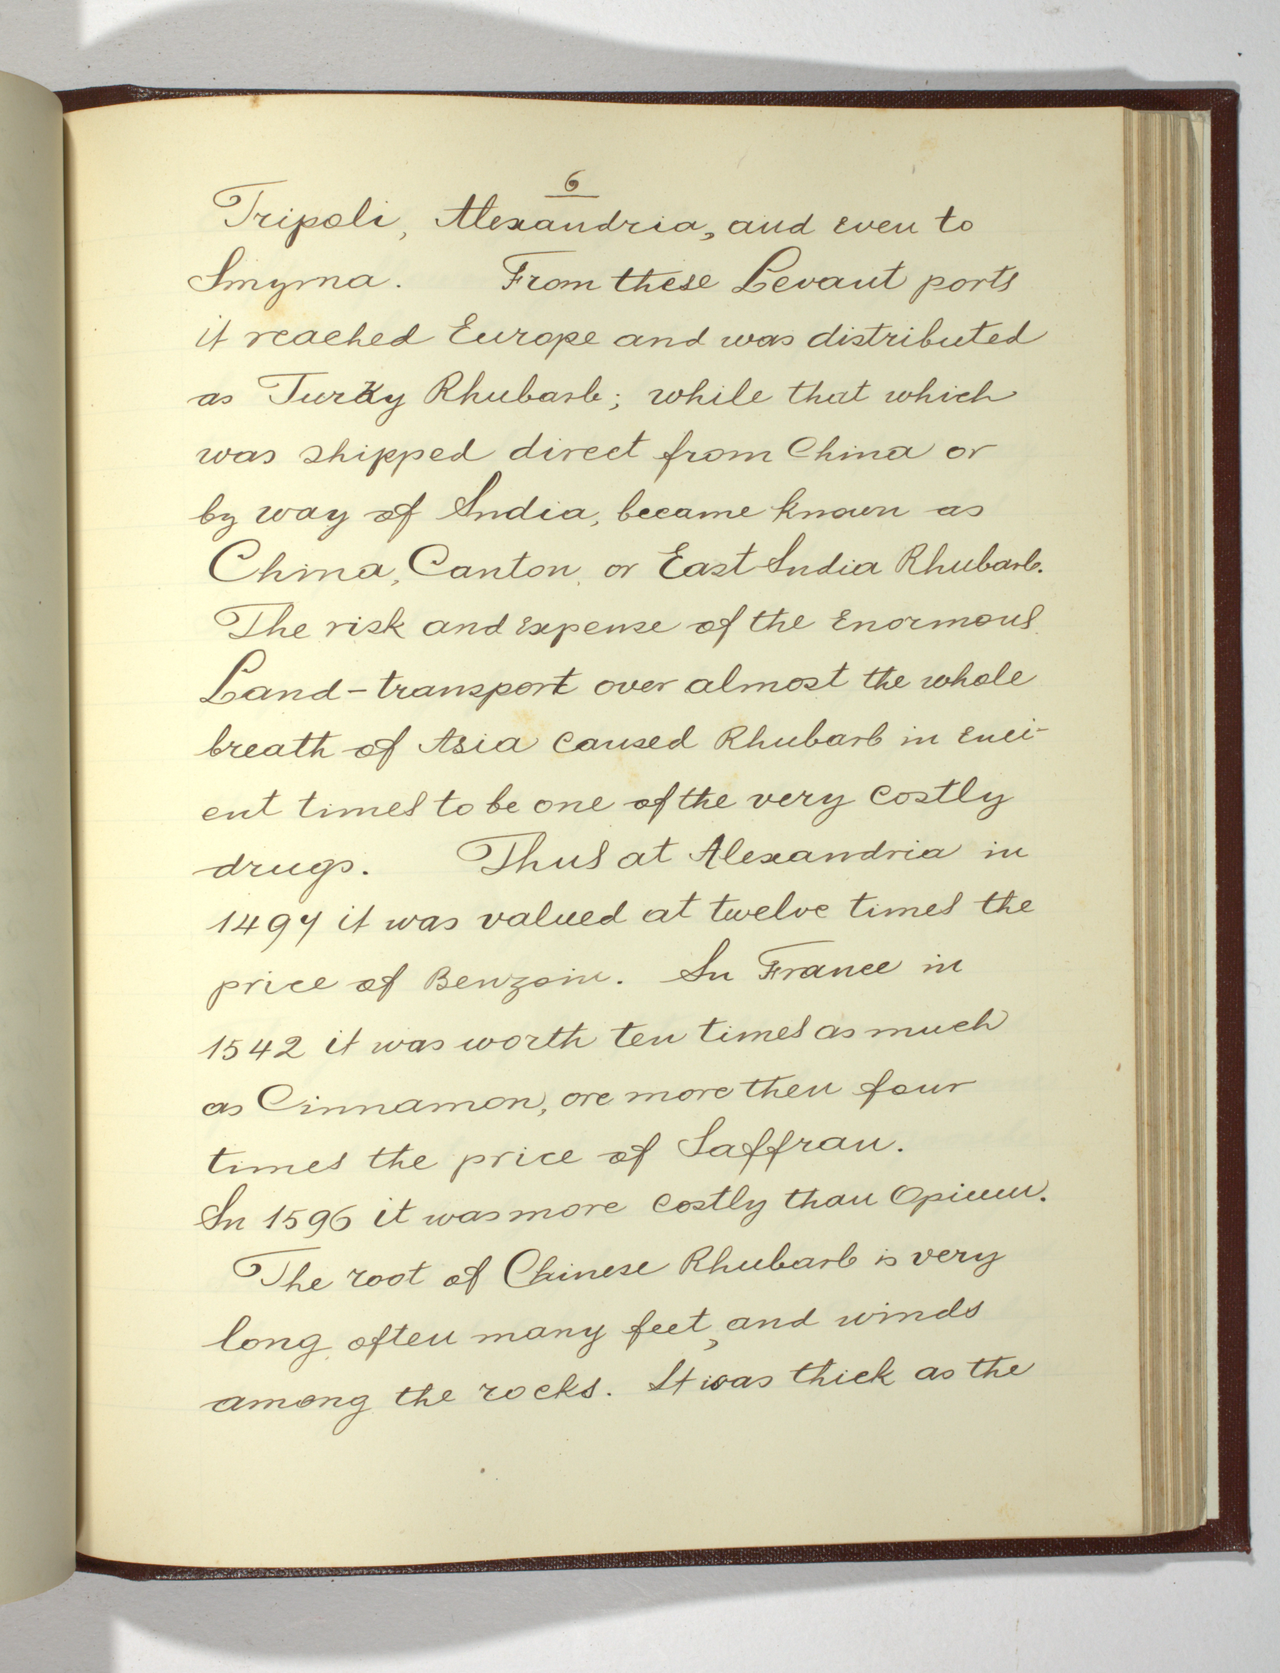 6
Tripoli, Alexandria, and even to
Smyrna. From these Levant ports
it reached Europe and was distributed
as Turky Rhubarb; while that which
was shipped direct from China or
by way of India, became known as
China, Canton, or East India Rhubarb.
The risk and expense of the enormous
Land-transport over almost the whole
breath of Asia caused Rhubarb in enci-
ent times to be one of the very costly
drugs. Thus at Alexandria in
1497 it was valued at twelve times the
price of Benzoin. In France in
1542 it was worth ten times as much
as Cinnamon, ore more then four
times the price of Saffran.
In 1596 it was more costly than Opium.
The root of Chinese Rhubarb is very
long, often many feet, and winds
among the rocks. It was thick as the